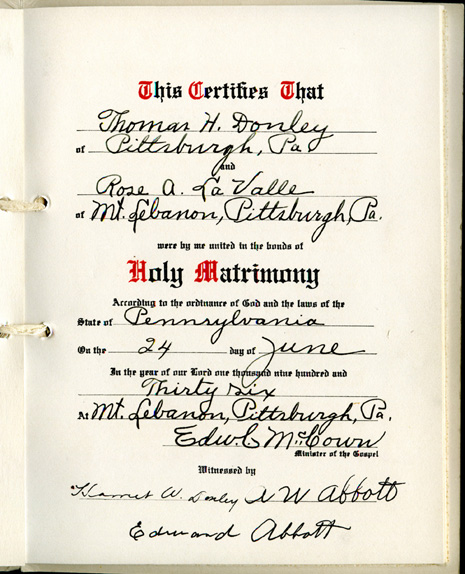 This Certifies That
Thomas H. Donley
of Pittsburgh, Pa.
and
Rose A. La Valle
of Mt. Lebanon, Pittsburgh, Pa.
were by me united in the bonds of
Holy Matrimony
According to the ordinance of God and the laws of the
State of Pennsylvania
On the 24 day of June
In the year of our Lord one thousand nine hundred and
Thirty six
At Mt. Lebanon, Pittsburgh, Pa.
Edw. C McCown
Minister of the Gospel
Witnessed by
Harriet W. Donley A W Abbott
Edward Abbott